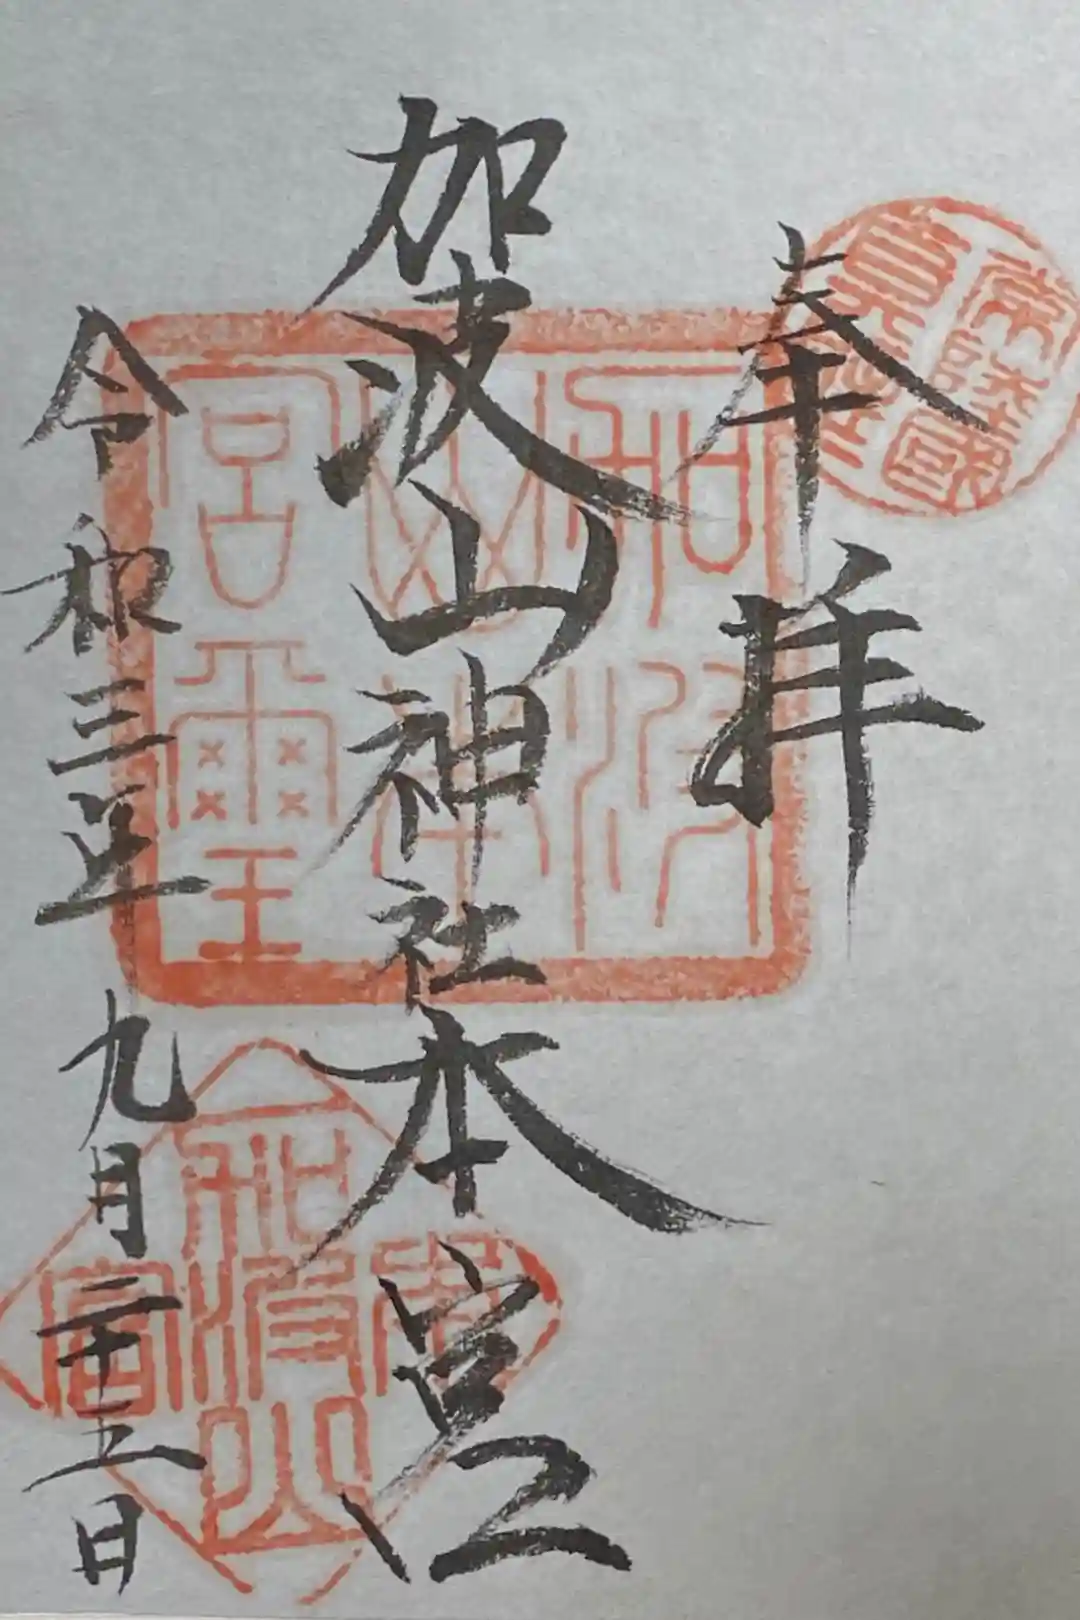 奉拝
加波山神社本宮
令和三年九月二十五日
加波
山本
宮璽
常陸國
加波山